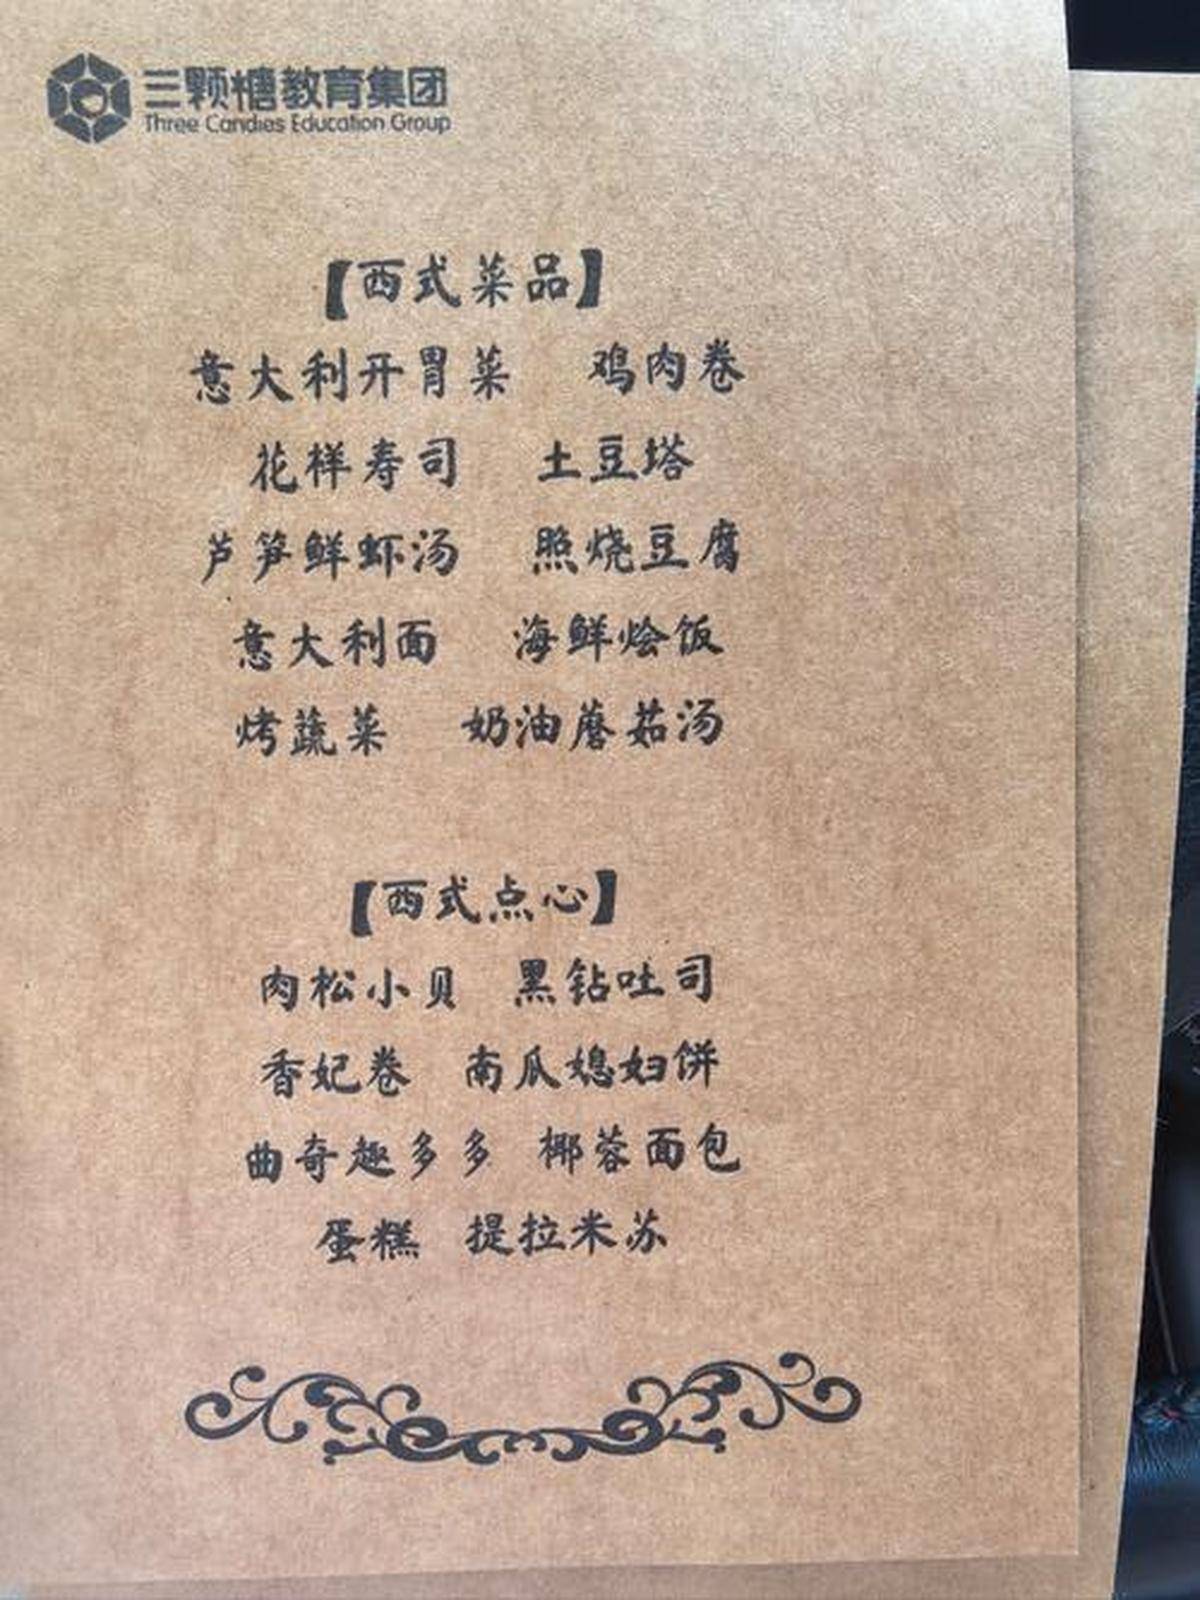 三颗糖教育集团
Three Candies Education Group
【西式菜品】
意大利开胃菜 鸡肉卷
花样寿司 土豆塔
芦笋鲜虾汤 照烧豆腐
意大利面 海鲜烩饭
烤蔬菜 奶油蘑菇汤
【西式点心】
肉松小贝 黑钻吐司
香妃卷 南瓜媳妇饼
曲奇趣多多 椰蓉面包
蛋糕 提拉米苏